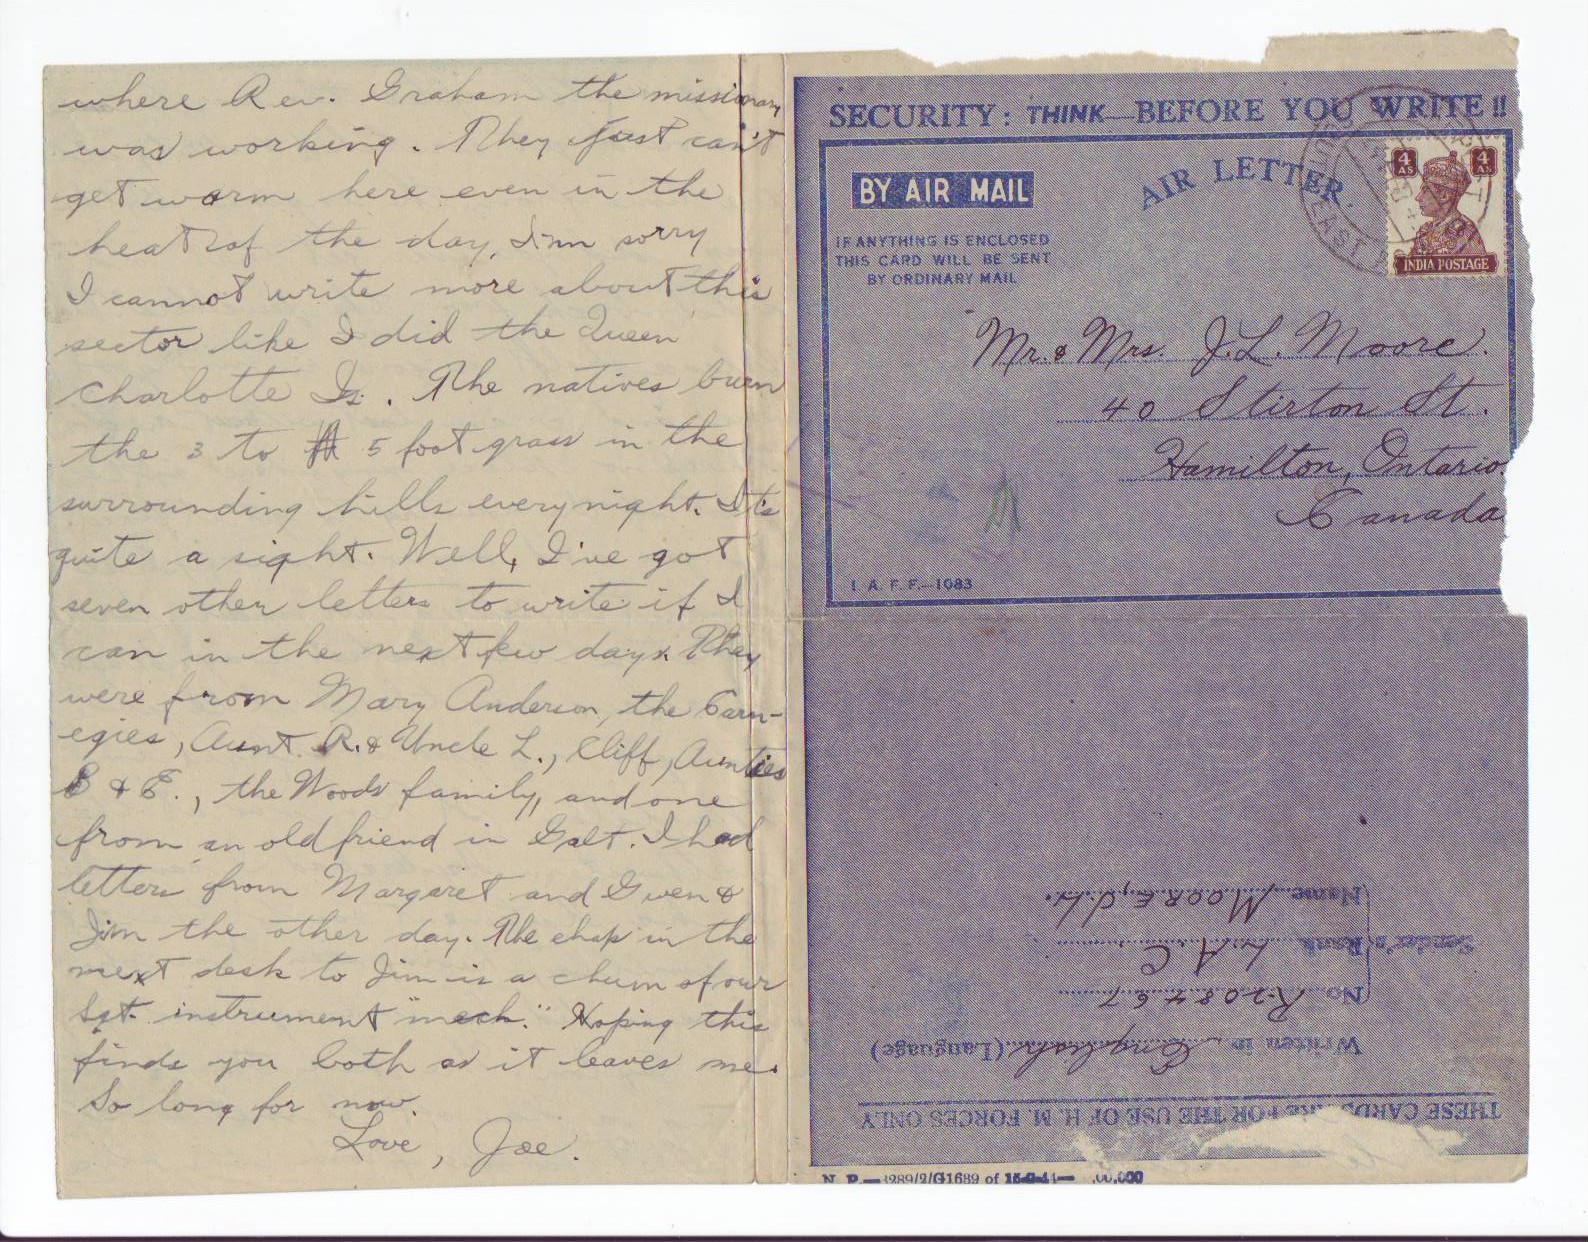 where Rev. Graham the missionary
was working. They just can't
get warm here even in the
heat of the day, I'm sorry
I cannot write more about this
sector like I did the Queen
Charlotte Is. The natives burn
the 3 to 5 foot grass in the
surrounding hills every night. It's
quite a sight. Well, I've got
seven other letters to write if I
can in the next few days. They
were from Mary Anderson, the Carn-
egies, Aunt R. & Uncle L., Cliff, Aunties
B & E., the Woods family, and one
from an old friend in Galt. I had
letters from Margaret and Gwen &
Jim the other day. The chap in the
next desk to Jim is a chum of our
Sgt. instrument "mech." Hoping this
finds you both as it leaves me.
So long for now.
Love, Joe.
SECURITY: THINK—BEFORE YOU WRITE!!
BY AIR MAIL
AIR LETTER.
IF ANYTHING IS ENCLOSED
THIS CARD WILL BE SENT
BY ORDINARY MAIL
4 AS 4 AS
INDIA POSTAGE
Mr. & Mrs. J. L. Moore.
40 Stirton St.
Hamilton, Ontario.
Canada
I. A. F. F.—1083
THESE CARDS ARE FOR THE USE OF H. M. FORCES ONLY
Written in English (Language)
Sender's
No. R-208467
Rank L.A.C.
Name MOORE, J.W.
N. P.—3289/2/G1689 of